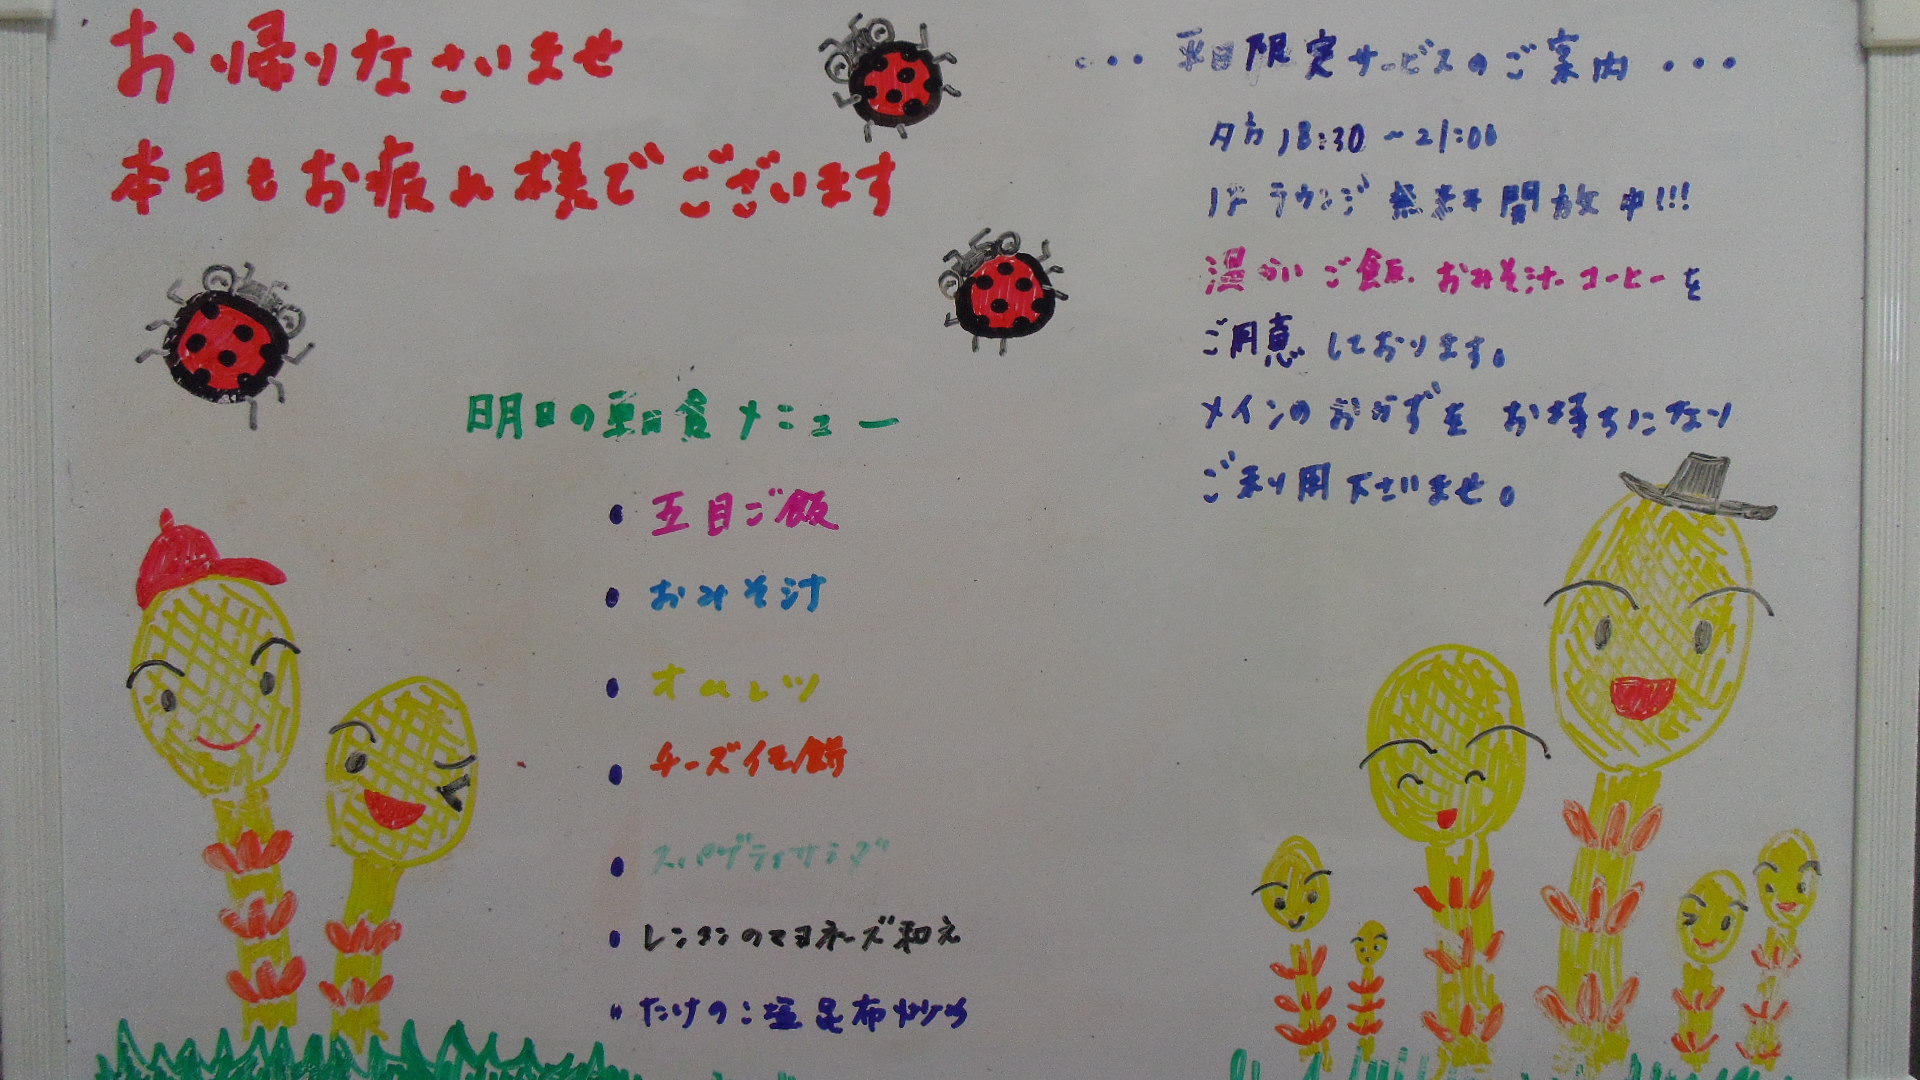 お帰りなさいませ
本日もお疲れ様でございます
明日の朝食メニュー
• 五目ご飯
• おみそ汁
• オムレツ
• チーズイモ餅
• スパゲティサラダ
• レンコンのマヨネーズ和え
• たけのこ塩昆布炒め
・・・ 平日限定サービスのご案内 ・・・
夕方 18:30 ~ 21:00
1F ラウンジ 無料開放中!!!
温かいご飯、おみそ汁、コーヒーを
ご用意しております。
メインのおかずを お持ちになり
ご利用下さいませ。